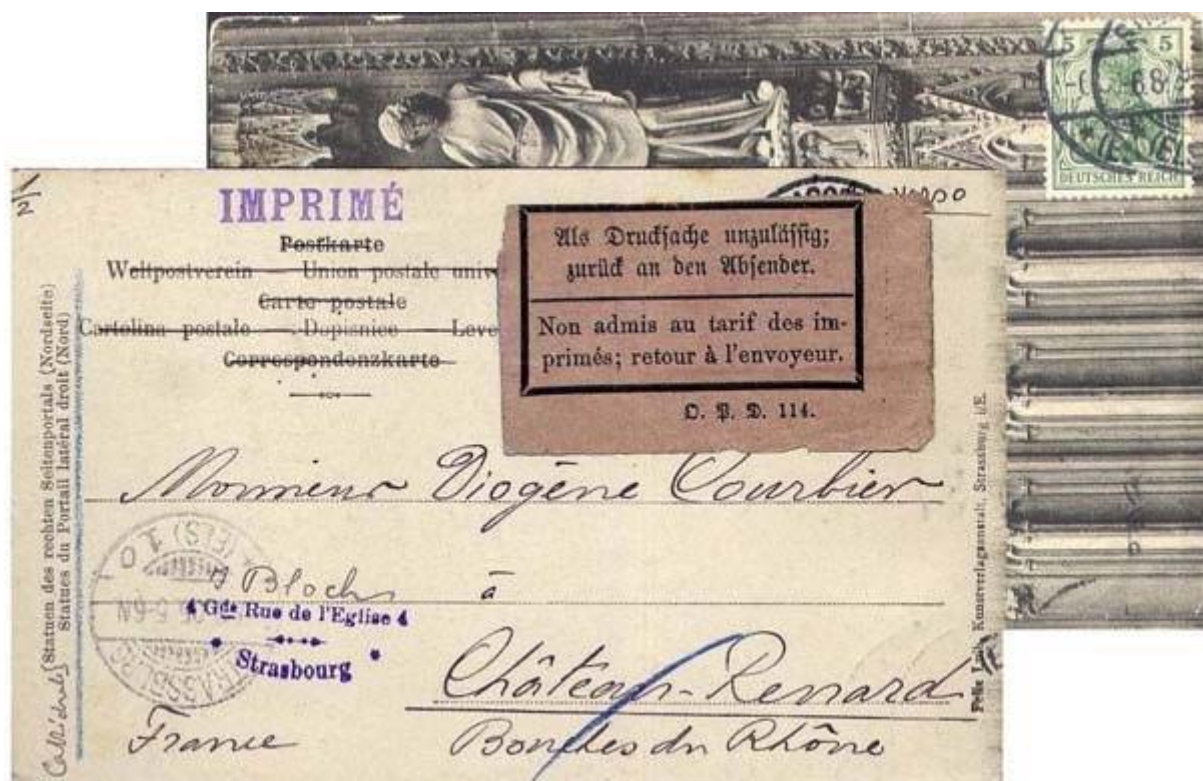 5 5
DEUTSCHES REICH
1/2
IMPRIMÉ
Postkarte
Weltpostverein — Union postale univ
Carte postale
Cartolina postale — Dopisnice — Leve
Correspondenzkarte
Als Drucksache unzulässig;
zurück an den Absender.
Non admis au tarif des im-
primés; retour à l'envoyeur.
O. P. D. 114.
Monsieur Diogène Courbier
à
Bloch
4 Gde Rue de l'Eglise 4
Strasbourg
Château-Renard
France
Bouches du Rhône
Statuen des rechten Seitenportals (Nordseite)
Statues du Portail latéral droit (Nord)
Kunstverlagsanstalt, Strassburg i/E.